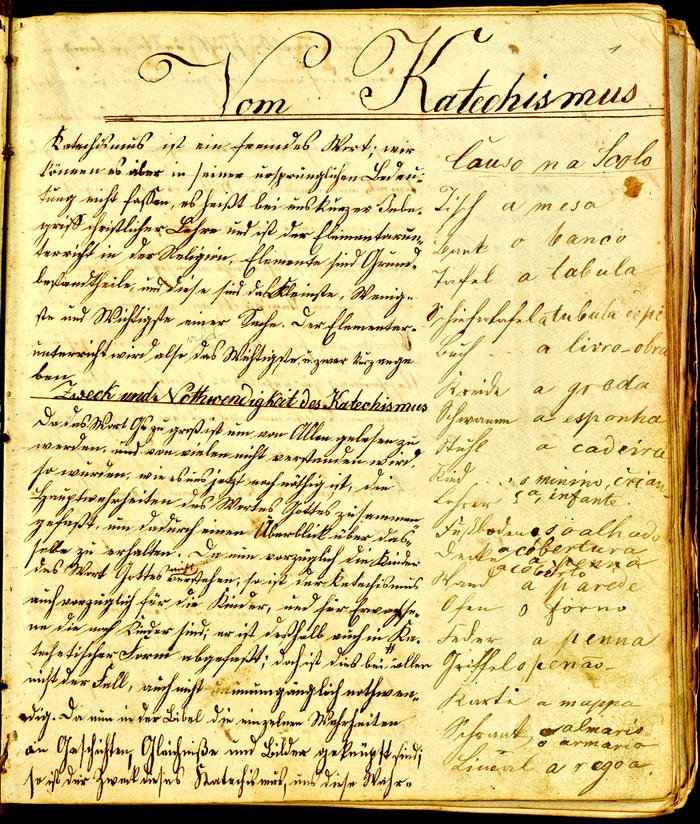 Vom Katechismus
Katechismus ist ein fremdes Wort; wir
können es aber in seiner ursprünglichen Bedeu-
tung nicht fassen, es heißt bei uns kurzer Inbe-
griff christlicher Lehre und ist der Elementarun-
terricht in der Religion. Elemente sind Grund-
bestandtheile, und diese sind das Kleinste, Wenig-
ste und Wichtigste einer Sache. Der Elementar-
unterricht wird also das Wichtigste, u. zwar kurz ange
ben.
Zweck und Nothwendigkeit des Katechismus
Da das Wort Gs. zu groß ist um von Allen gelesen zu
werden, und von vielen nicht verstanden wird,
so wurden, wie es uns jetzt noch nöthig ist, die
Hauptwahrheiten des Wortes Gottes zusammen
gefaßt, um dadurch einen Überblick über das
selbe zu erhalten. Da nun vorzüglich die Kinder
das Wort Gottes nicht verstehen, so ist der Katechismus
auch vorzüglich für die Kinder, und für Erwachse-
ne die noch Kinder sind; er ist deßhalb auch in Ka-
techetischer Form abgefaßt; doch ist dies bei allen
nicht der Fall, auch nicht unumgänglich nothwen-
dig. Da nun in der Bibel die einzelnen Wahrheiten
an Geschichten, Gleichniße und Bilder geknüpft sind;
so ist der Zweck dieses Katechismus, uns diese Wahr-
Tisch a mesa
Bank o banco
Tafel a tabula
Buch a livro-obra
Kreide a greda
Schwamm a esponha
Stuhl a cadeira
Kind o minino, crian-
Lehrer a, infante.
Fußboden soalhado
Decke a cobertura
Wand a parede
Ofen o forno
Feder a penna
Griffel o penao
Karte a mappa
Schrank o almario
o armario
Lineal a regoa